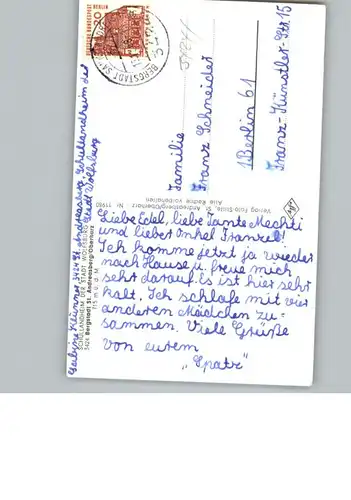 20
DEUTSCHE BUNDESPOST BERLIN
BERGSTADT ST.
Familie
Franz Schneider
1 Berlin 61
Franz-Künstler-Str 15
Verlag Foto-Stolle, St. Andreasberg/Oberharz Nr. 11980
Alle Rechte vorbehalten
3424 St. Andreasberg Schullandheim der
Stadt Wolfsburg
SCHULLANDHEIM DER STADT WOLFSBURG
3424 Bergstadt St. Andreasberg/Oberharz
715 m ü. d. M.
Liebe Edel, liebe Tante Mechti
und lieber Onkel Franzel!
Ich komme jetzt ja wieder
nach Hause u. freue mich
sehr darauf. Es ist hier sehr
kalt. Ich schlafe mit vier
anderen Mädchen zu-
sammen. Viele Grüße
von eurem
„Spatz"